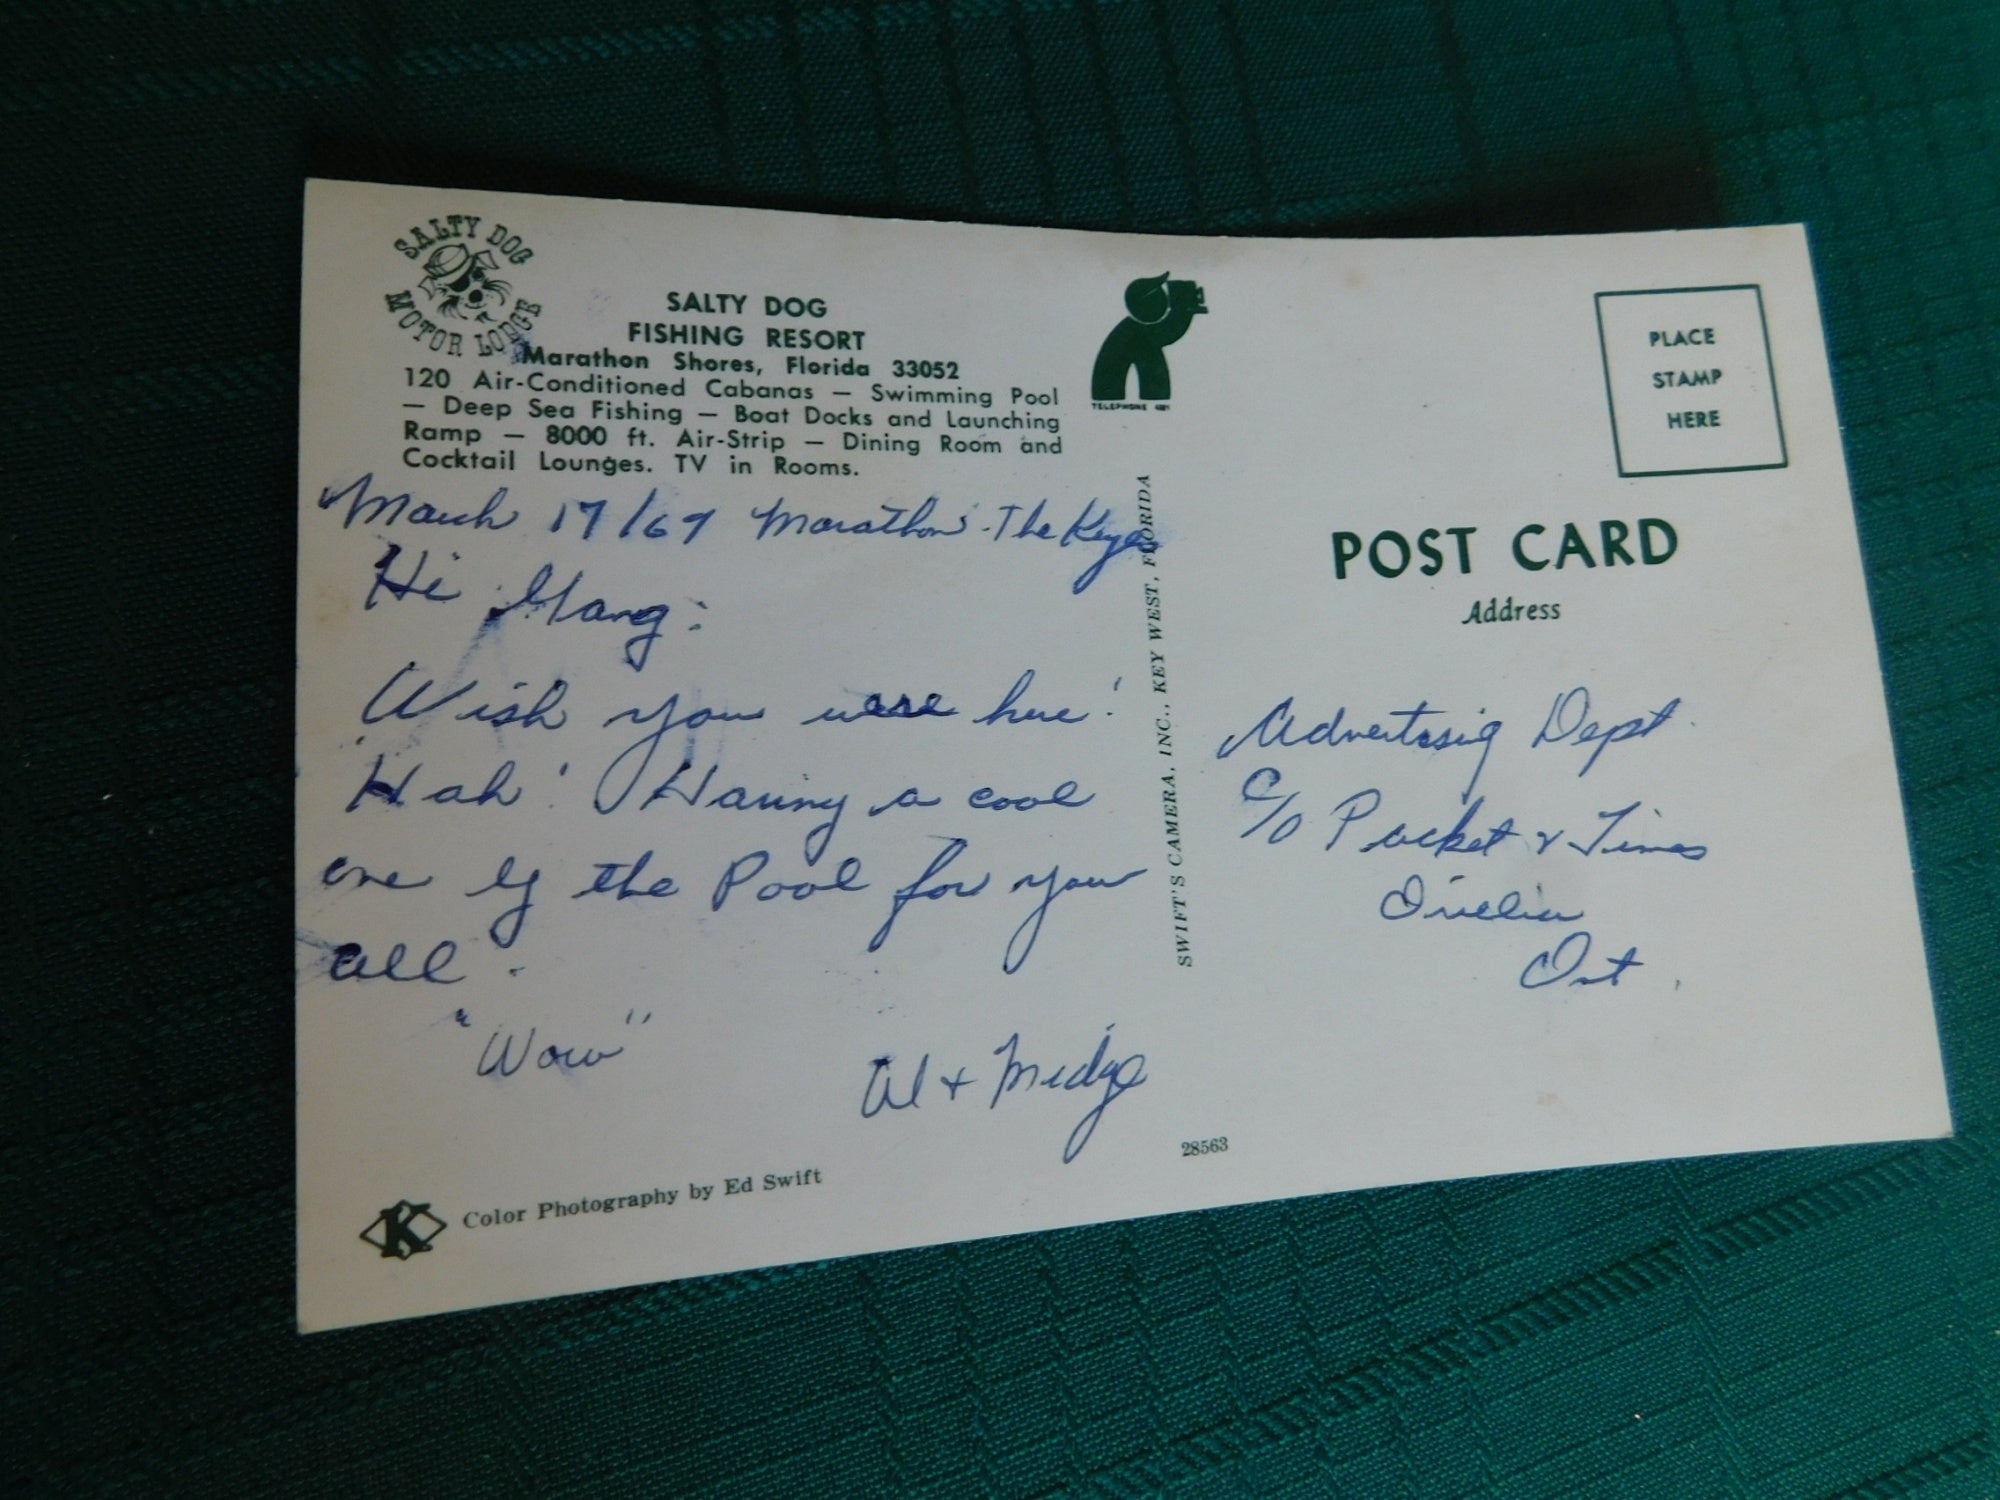 SALTY DOG
MOTOR LODGE
SALTY DOG
FISHING RESORT
Marathon Shores, Florida 33052
120 Air-Conditioned Cabanas — Swimming Pool
— Deep Sea Fishing — Boat Docks and Launching
Ramp — 8000 ft. Air-Strip — Dining Room and
Cocktail Lounges. TV in Rooms.
March 17/69 Marathon - The Keys
Hi Gang:
Wish you were here!
Hah! Having a cool
one by the Pool for you
all.
"Wow"
Al + Midge
Color Photography by Ed Swift
K
TELEPHONE
SWIFT'S CAMERA, INC., KEY WEST, FLORIDA
28563
PLACE
STAMP
HERE
POST CARD
Address
Advertisig Dept.
c/o Packet & Times
Orillia
Ont.